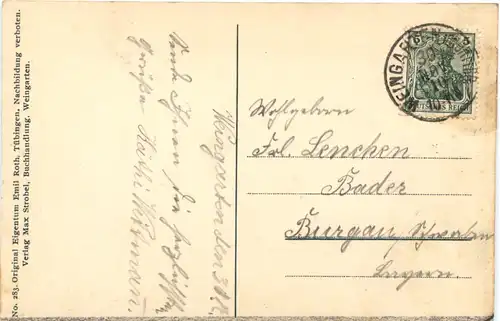 No. 283. Original Eigentum Emil Roth, Tübingen. Nachbildung verboten.
Verlag Max Strobel, Buchhandlung, Weingarten.
Weingarten den
Sende Ihnen die herzlichsten
Grüße Käthi
WEINGARTEN
DEUTSCHES REICH
Wohlgeboren
Frl. Lenchen
Bader
Burgau Schwaben
Bayern